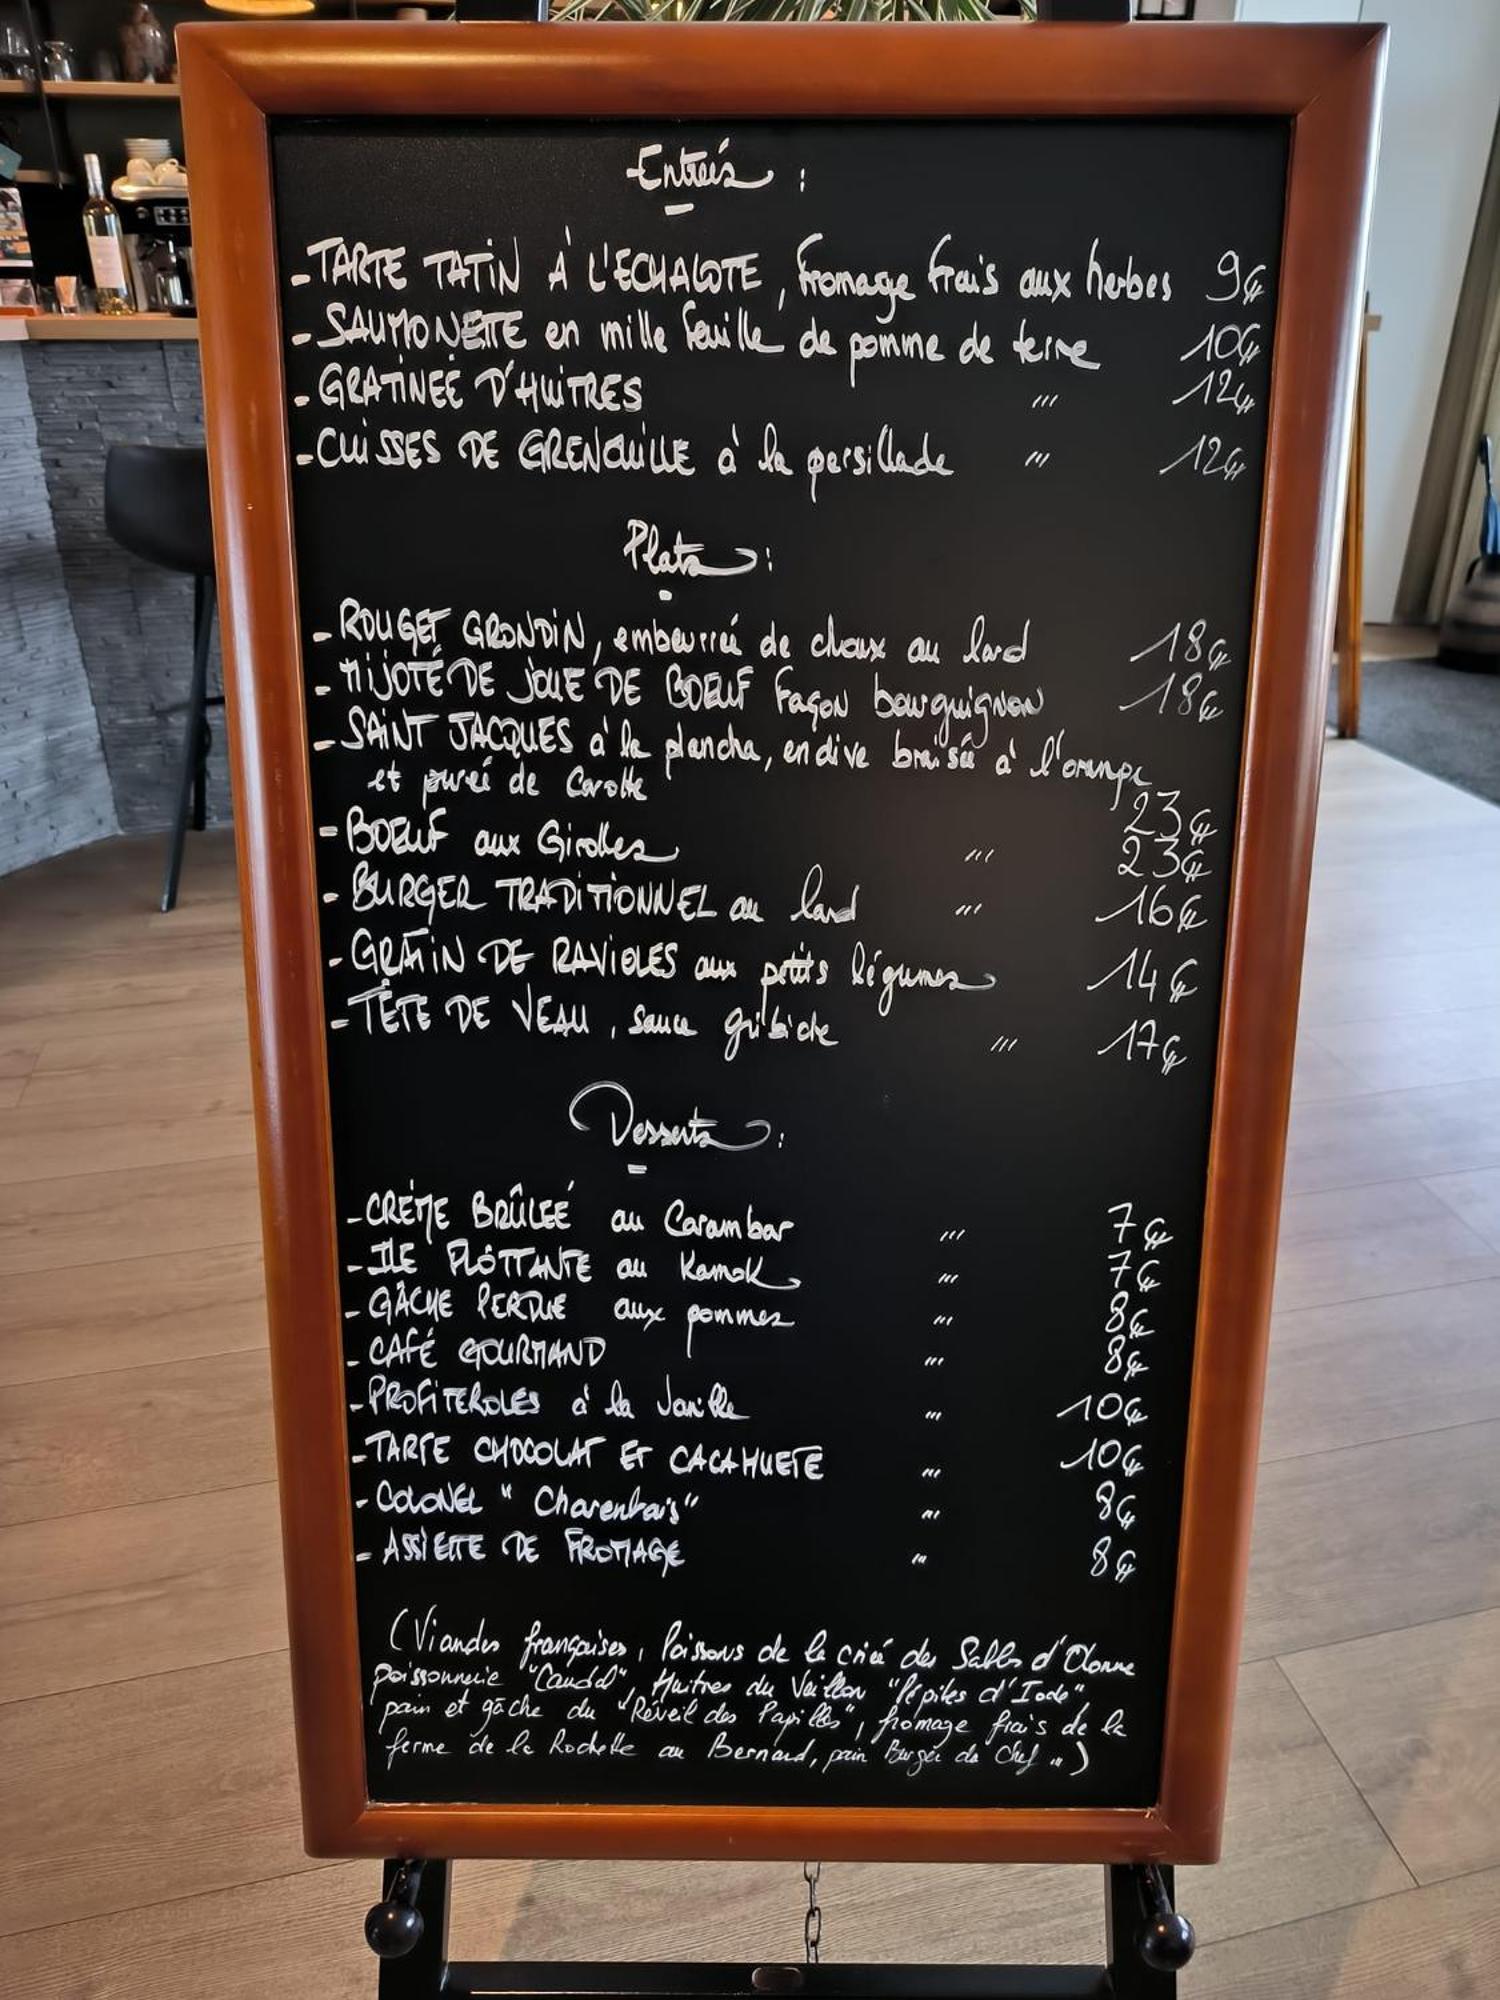 Entrées :
- TARTE TATIN À L'ECHALOTE, fromage frais aux herbes 9€
- SAUMONETTE en mille feuille de pomme de terre 10€
- GRATINEÉ D'HUITRES ''' 12€
- CUISSES DE GRENOUILLE à la persillade ''' 12€
Plats :
- ROUGET GRONDIN, embeurrée de choux au lard 18€
- MIJOTÉ DE JOUE DE BOEUF façon bourguignon 18€
- SAINT JACQUES à la plancha, endive braisée à l'orange
et purée de Carotte 23€
- BOEUF aux Girolles ''' 23€
- BURGER TRADITIONNEL au lard ''' 16€
- GRATIN DE RAVIOLES aux petits légumes 14€
- TÊTE DE VEAU, sauce gribiche ''' 17€
Desserts :
- CRÈME BRÛLEÉ au Carambar ''' 7€
- ILE FLOTTANTE au Kamok ''' 7€
- GÂCHE PERDUE aux pommes ''' 8€
- CAFÉ GOURMAND ''' 8€
- PROFITEROLES à la Vanille ''' 10€
- TARTE CHOCOLAT ET CACAHUETE ''' 10€
- COLONEL "Charentais" ''' 8€
- ASSIETTE DE FROMAGE ''' 8€
(Viandes françaises, Poissons de la criée des Sables d'Olonne
poissonnerie "Caudal", Huitres du Veillon "Pépites d'Iode",
pain et gâche du "Réveil des Papilles", fromage frais de la
ferme de la Rochette au Bernard, pain Burger du Chef ...)